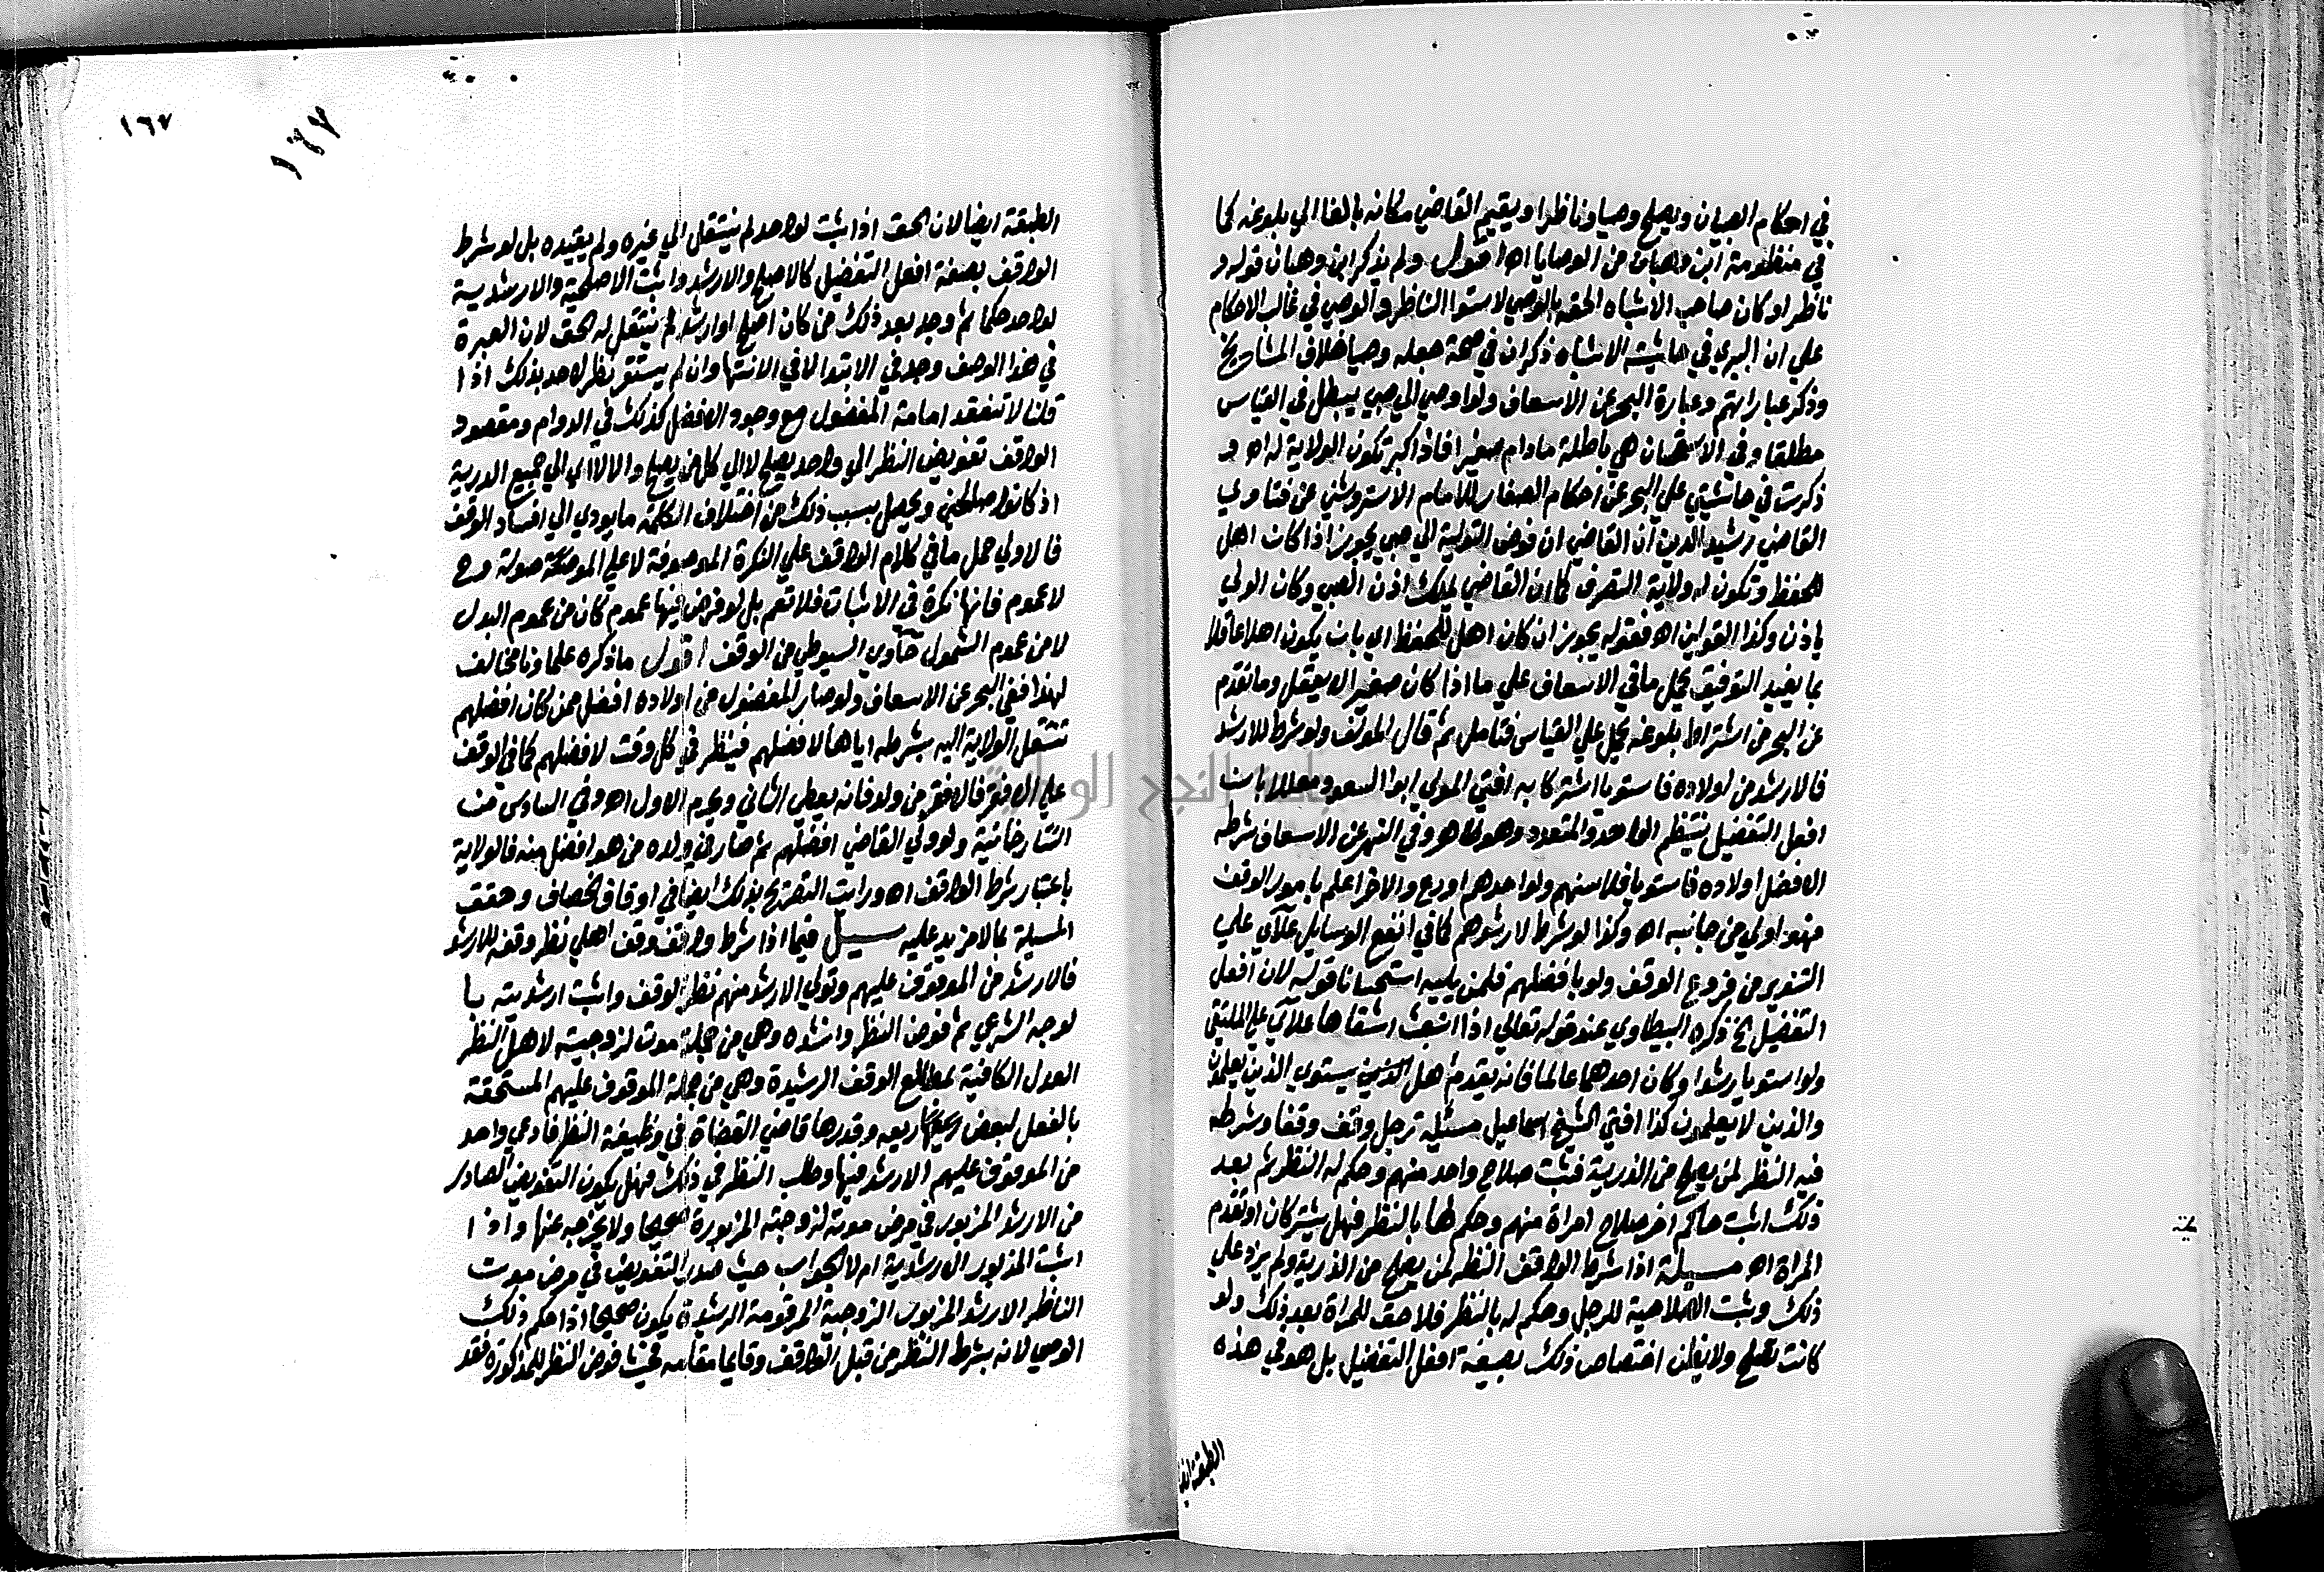 في احكام الصبيان ويصلح وصيا وناظرا ويقيم القاضي مكانه بالغا الي بلوغه كما
في منظومة ابن وهبان من الوصايا اه اقول ولم يذكر ابن وهبان قوله و
ناظرا وكان صاحب الاشباه الحقه بالوصي لاستوا الناظر والوصي في غالب الاحكام
علي ان البيري في حاشية الاشباه ذكر ان في صحة جعله وصيا خلاف المشايخ
وذكر عباراتهم وعبارة البحر عن الاسعاف ولو اوصي الي صبي يبطل في القياس
مطلقا وفي الاستحسان هي باطلة مادام صغيرا فاذا كبر تكون الولاية له اه و
ذكرت في حاشيتي علي البحر عن احكام الصغار للامام الاستروشني عن فتاوي
القاضي رشيد الدين ان القاضي ان فوض التولية الي صبي يجوز اذا كان اهل
للحفظ وتكون له ولاية التصرف كما ان القاضي يملك اذن الصبي وكان الولي
ياذن وكذا القولين اه فقوله يجوز ان كان اهل للحفظ اي بان يكون اهلا عاقلا
بما يفيد التوفيق بحمل ما في الاسعاف علي ما اذا كان صغيرا لا يعقل وما تقدم
عن البحر من اشتراط بلوغه يحمل علي القياس فتامل ثم قال المولف ولو شرط للارشد
فالارشد من اولاده فاستويا اشتركا به افتي المولي ابو السعود معللا بان
افعل التفضيل ينتظم الواحد والمتعدد وهو ظاهر وفي النهر عن الاسعاف شرطه
لافضل اولاده فاستويا فلاسنهم ولو احدهم اورع والاخر اعلم بامور الوقف
فهو اولي من جانبه اه وكذا لو شرط لارشدهم كما في انفع الوسايل علآي علي
التنوير من فروع الوقف ولو بافضلهم فلمن يليه استحسانا قوله لان افعل
التفضيل الخ ذكره البيضاوي عند قوله تعالي اذا انبعث اشقاها علآي علي الملتقي
ولو استويا رشدا وكان احدهما عالما فانه يقدم هل يستوي الذين يعلمون
والذين لا يعلمون كذا افتي الشيخ اسماعيل مسئلة رجل وقف وقفا وشرط
فيه النظر لمن يصلح من الذرية فثبت صلاح واحد منهم وحكم له النظر ثم بعد
ذلك اثبت حاكم اخر صلاح امراة منهم وحكم لها بالنظر فهل يشتركان او تقدم
المراة اه مسيلة اذا شرط الواقف النظر لمن يصلح من الذرية ولم يزد علي
ذلك وثبت الصلاحية للرجل وحكم له بالنظر فلا حق للمراة بعد ذلك ولو
كانت تصلح ولا يظن اختصاص ذلك بصيغة افعل التفضيل بل هو في هذه
الطبقة ايضا
١٦٧
١٦٧
الطبقة ايضا لان الحق اذا ثبت لواحد لم ينتقل الي غيره ولم يقيده بل لو شرط
الواقف بصفة افعل التفضيل كالاصلح والارشد واثبت الاصلحية والارشدية
لواحد حكما ثم وجد بعد ذلك من كان اصلح او ارشد لم ينتقل له الحق لان العبرة
في هذا الوصف وجد في الابتدا لا في الانتها وان لم يستقر نظر لاحد بذلك اذا
قلنا لا تنعقد امامة المفضول مع وجود الافضل كذلك في الدوام ومقصود
الواقف تفويض النظر الي واحد يصلح لا الي كل من يصلح والا لاي الي جميع الذرية
اذ كانوا صالحين ويحصل بسبب ذلك من اختلاف الكلمة ما يودي الي افساد الوقف
فالاولي حمل ما في كلام الواقف علي النكرة الموصوفة لا علي الموصولة وح
لا عموم فانها نكرة في الاثبات فلا تعم بل لو فرض فيها عموم كان من عموم البدل
لا من عموم الشمول حاوي السيوطي من الوقف اقول ما ذكره علماونا مخالف
لهذا ففي البحر عن الاسعاف ولو صار المفضول من اولاده افضل ممن كان افضلهم
تنتقل الولاية اليه بشرطه اياها لافضلهم فينظر في كل وقت لافضلهم كما في الوقف
علي الافقر فالافقر من ولده فانه يعطي الثاني ويحرم الاول اه وفي السادس من
التتارخانية ولو ولي القاضي افضلهم ثم صار في ولده من هو افضل منه فالولاية
باعتبار شرط الواقف اه ورايت التصريح بذلك ايضا في اوقاف الخصاف وحقق
المسيلة بما لا مزيد عليه سيل فيما اذا شرط واقف وقف اهلي نظر وقفه للارشد
فالارشد من الموقوف عليهم وتولي الارشد منهم نظر الوقف واثبت ارشديته با
لوجه الشرعي ثم فوض النظر واسنده وهي من موت لزوجيته لاهل النظر
العدل الكافية لمصالح الوقف الرشيدة وهي من جملة الموقوف عليهم المستحقة
بالفعل لبعض ريعه وقدرها قاضي القضاة في وظيفة النظر فادعي واحد
من الموقوف عليهم الارشد فيها وطلب النظر في ذلك فهل يكون التفويض الصادر
من الارشد المزبور في مرض موته لزوجته المزبورة صحيحا ولا يخرجه عنها واذا
اثبت المذبور الارشدية ام لا الجواب حيث صدر التفويض في مرض موت
الناظر الارشد المزبور الزوجية المرقومة الرشيدة يكون صحيحا اذا حكم ذلك
الوصي لانه بشرط النظر من قبل الواقف وقايما مقامه فحيث فوض النظر للمذكورة فقد